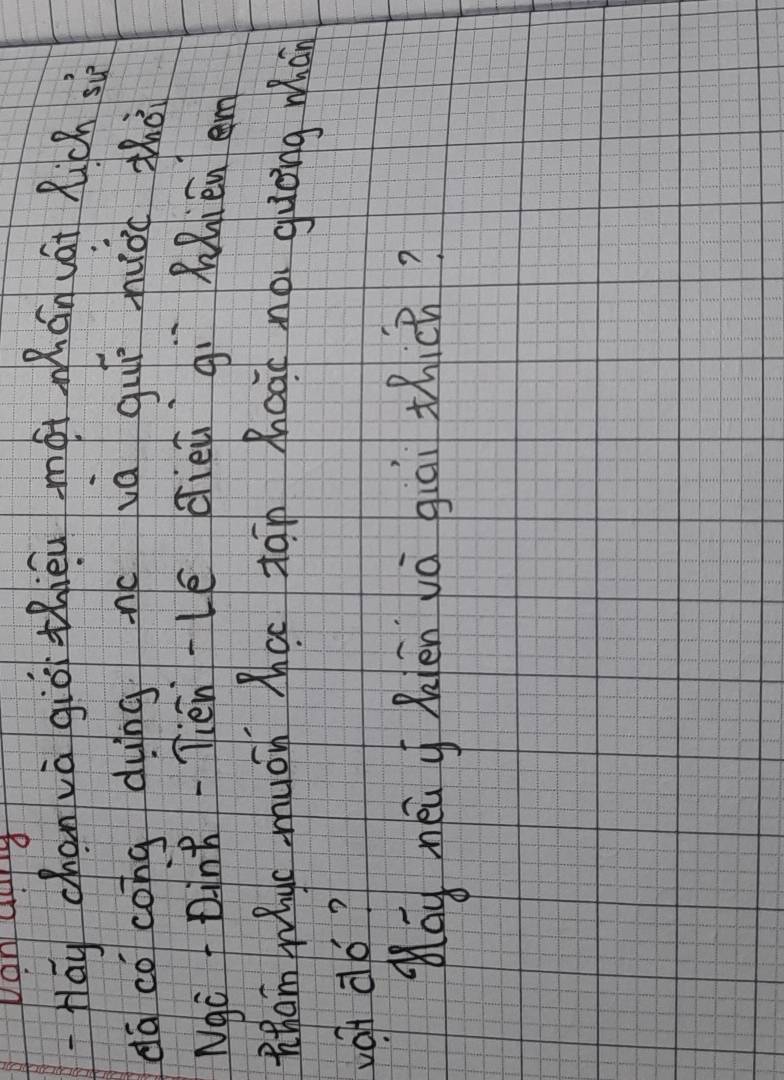 Vận dụng
- Hãy chọn và giới thiệu một nhân vật lịch sử
đã có công dựng nc và giữ nước thời
Ngô - Đinh - Tiền - Lê điều gì khiến em
khâm phục muốn học tập hoặc noi gương nhân
vật đó?
Hãy nêu ý kiến và giải thích?